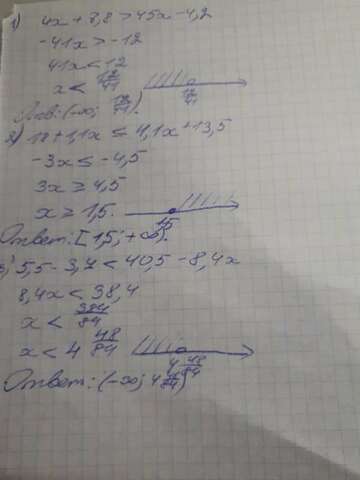 1) 4x + 7,8 > 45x - 4,2
-41x > -12
41x < 12
x < 12/41
12/41
Отв: (-∞; 12/41).
2) 18 + 1,1x ≤ 4,1x + 13,5
-3x ≤ -4,5
3x ≥ 4,5
x ≥ 1,5.
1,5
Ответ: [1,5; +∞).
5,5 - 3,4 < 40,5 - 8,4x
8,4x < 38,4
x < 384/84
x < 4 48/84
4 48/84
Ответ: (-∞; 4 48/84)